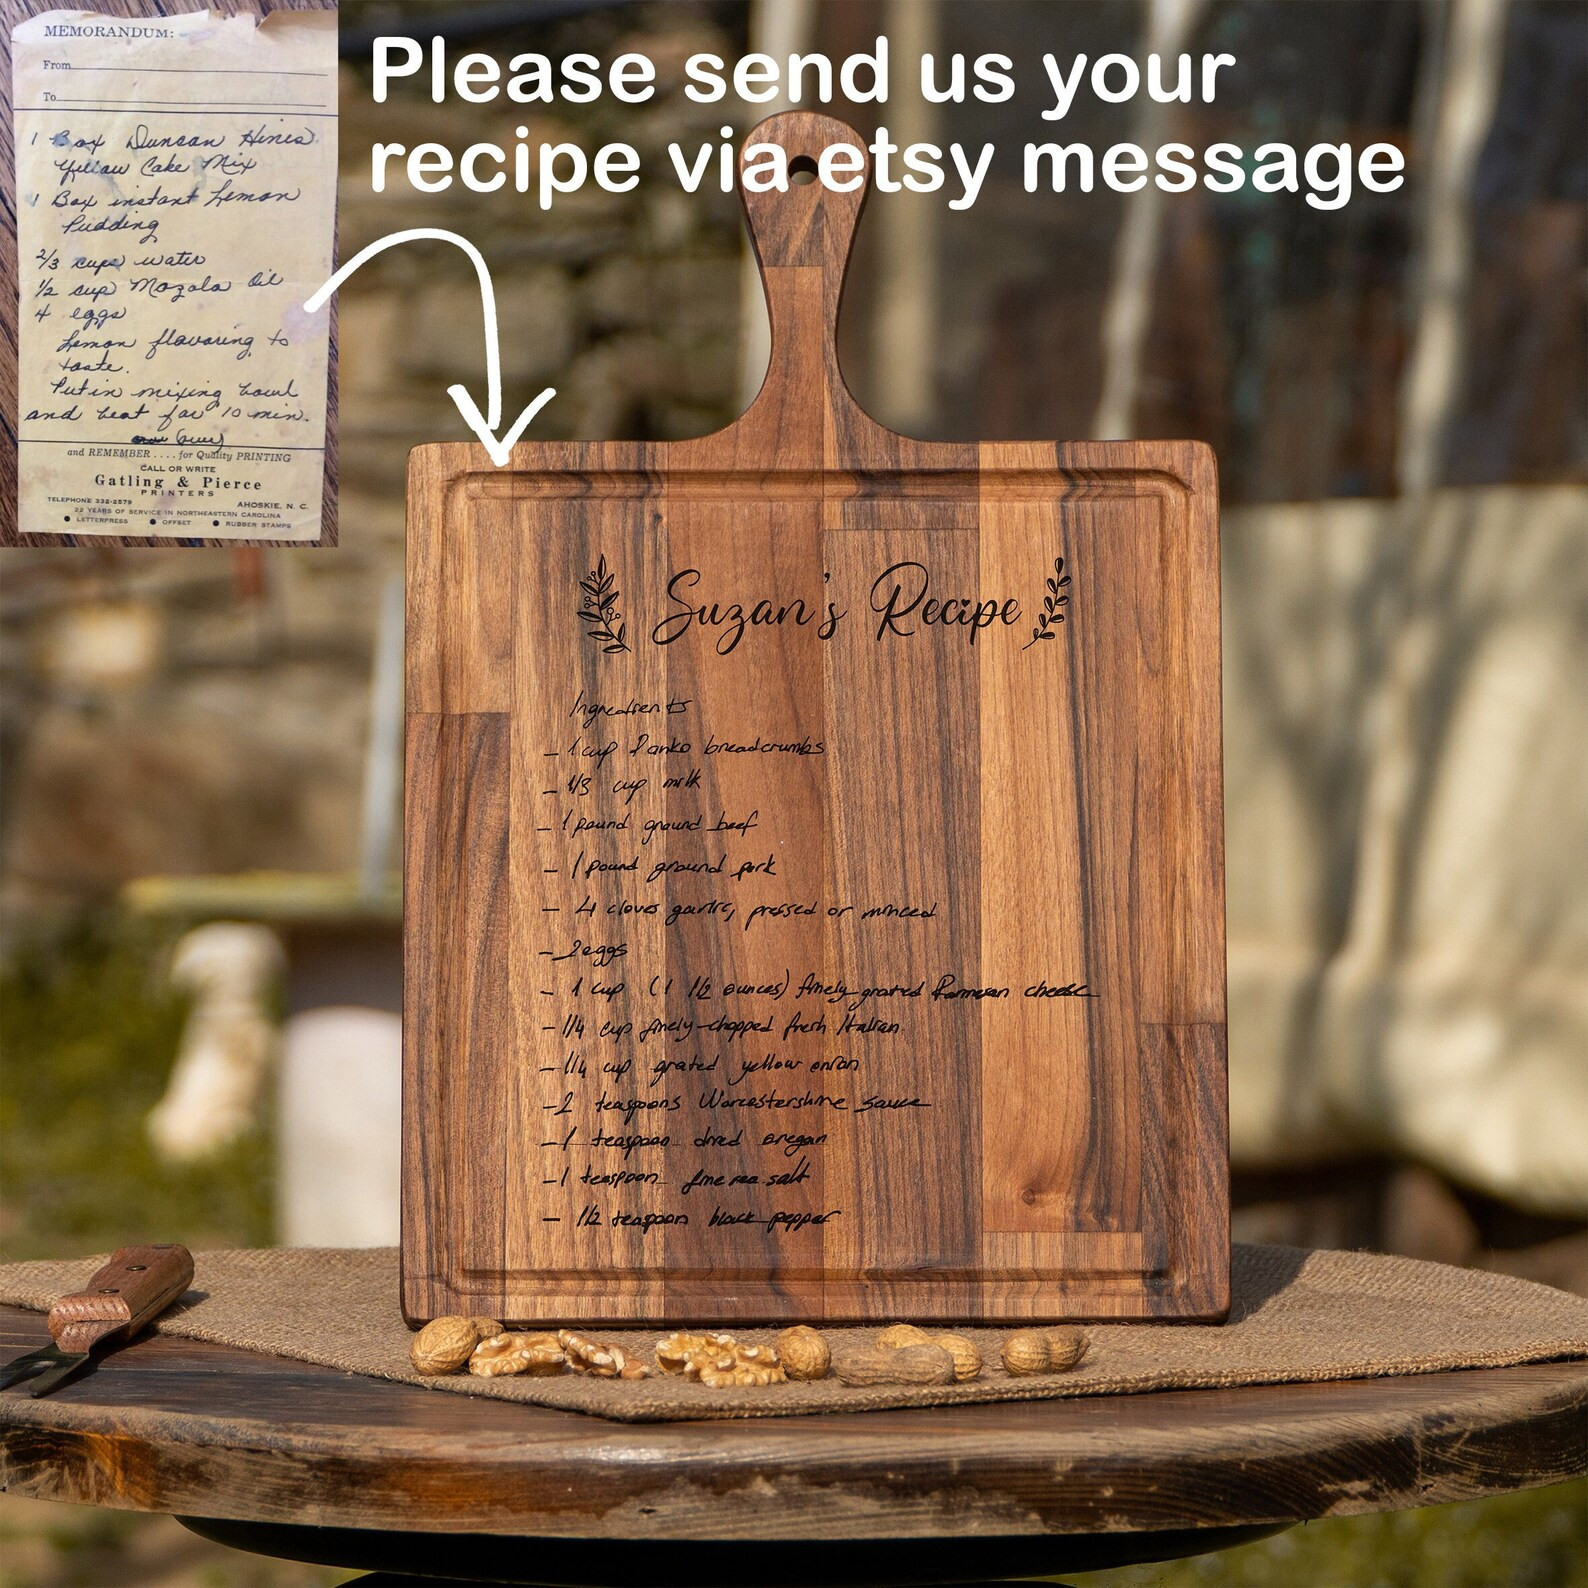 MEMORANDUM:
From
To
1 Box Duncan Hines
Yellow Cake Mix
1 Box instant Lemon
Pudding
2/3 cups water
1/2 cup Mazola Oil
4 eggs
Lemon flavoring to
taste.
Put in mixing bowl
and beat for 10 min.
(over)
and REMEMBER .... for Quality PRINTING
CALL OR WRITE
Gatling & Pierce
PRINTERS
TELEPHONE 332-2579 AHOSKIE, N. C.
22 YEARS OF SERVICE IN NORTHEASTERN CAROLINA
● LETTERPRESS ● OFFSET ● RUBBER STAMPS
Please send us your
recipe via etsy message
Suzan's Recipe
Ingredients
- 1 cup Panko breadcrumbs
- 1/3 cup milk
- 1 pound ground beef
- 1 pound ground pork
- 4 cloves garlic, pressed or minced
- 2 eggs
- 1 cup (1 1/2 ounces) finely grated Parmesan cheese
- 1/4 cup finely-chopped fresh Italian
- 1/4 cup grated yellow onion
- 2 teaspoons Worcestershire sauce
- 1 teaspoon dried oregan
- 1 teaspoon fine sea salt
- 1/2 teaspoon black pepper